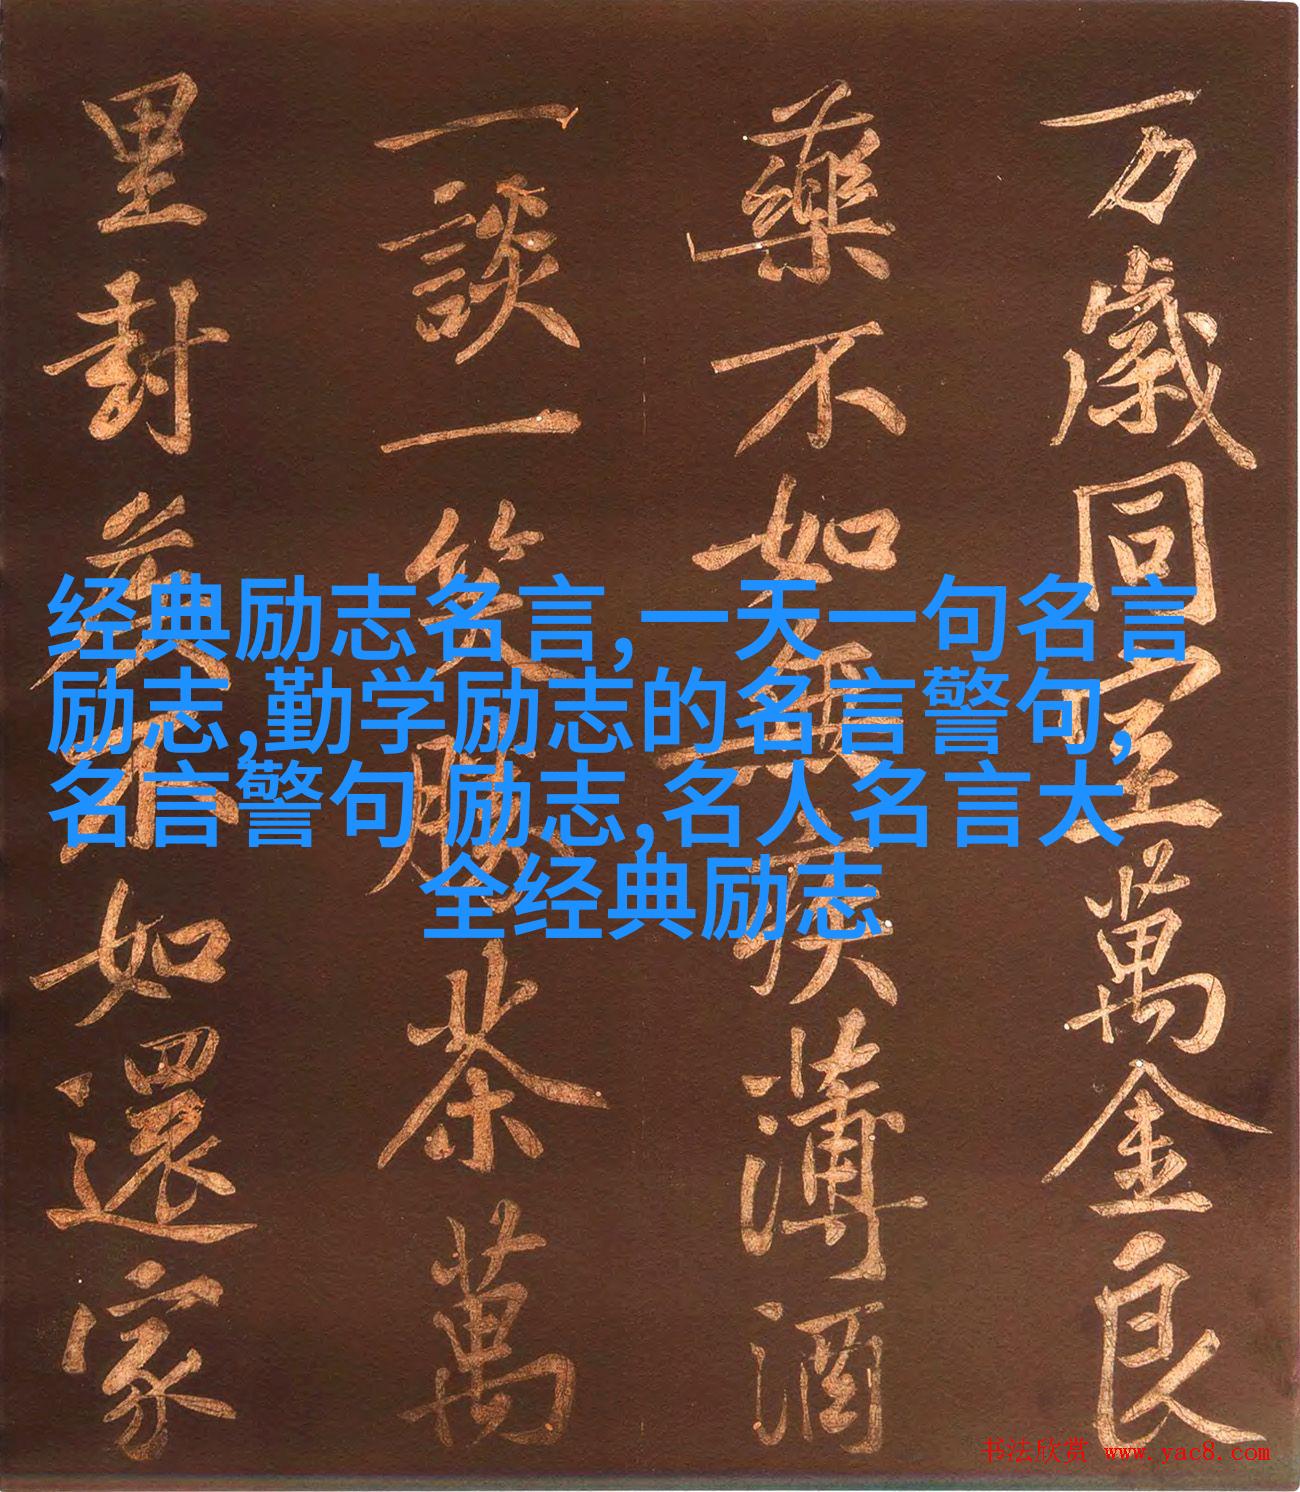 万歲同室萬金良
藥不如無疾薄酒
一談一笑勝茶萬
里封矦不如還家
经典励志名言,一天一句名言
励志,勤学励志的名言警句,
名言警句 励志,名人名言大
全经典励志
书法欣赏 www.yac8.com